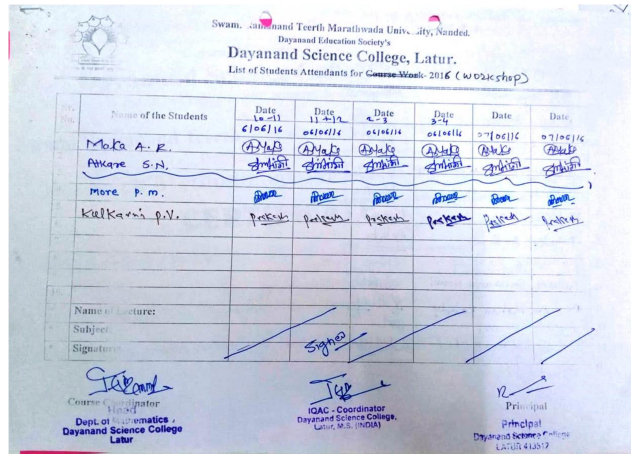 Swami Ramanand Teerth Marathwada University, Nanded.
Dayanand Education Society's
Dayanand Science College, Latur.
List of Students Attendants for Course Work- 2016 (Workshop)
Sr. No. Name of the Students Date 10-11 Date 11-12 Date 2-3 Date 3-4 Date Date
6/06/16 06/06/16 06/06/16 06/06/16 07/06/16 07/06/16
Moka A. R. AMaka AMaka AMaka AMaka AMaka AMaka
Atkare S.N.
More P. m.
Kulkarni P.V. Prakash Prakash Prakash Prakash Prakash Prakash
Name of Lecture:
Subject:
Signature: Signed
Course Coordinator
Head
Dept. of Mathematics
Dayanand Science College
Latur
IQAC - Coordinator
Dayanand Science College,
Latur, M.S. (INDIA)
Principal
Principal
Dayanand Science College
LATUR 413512